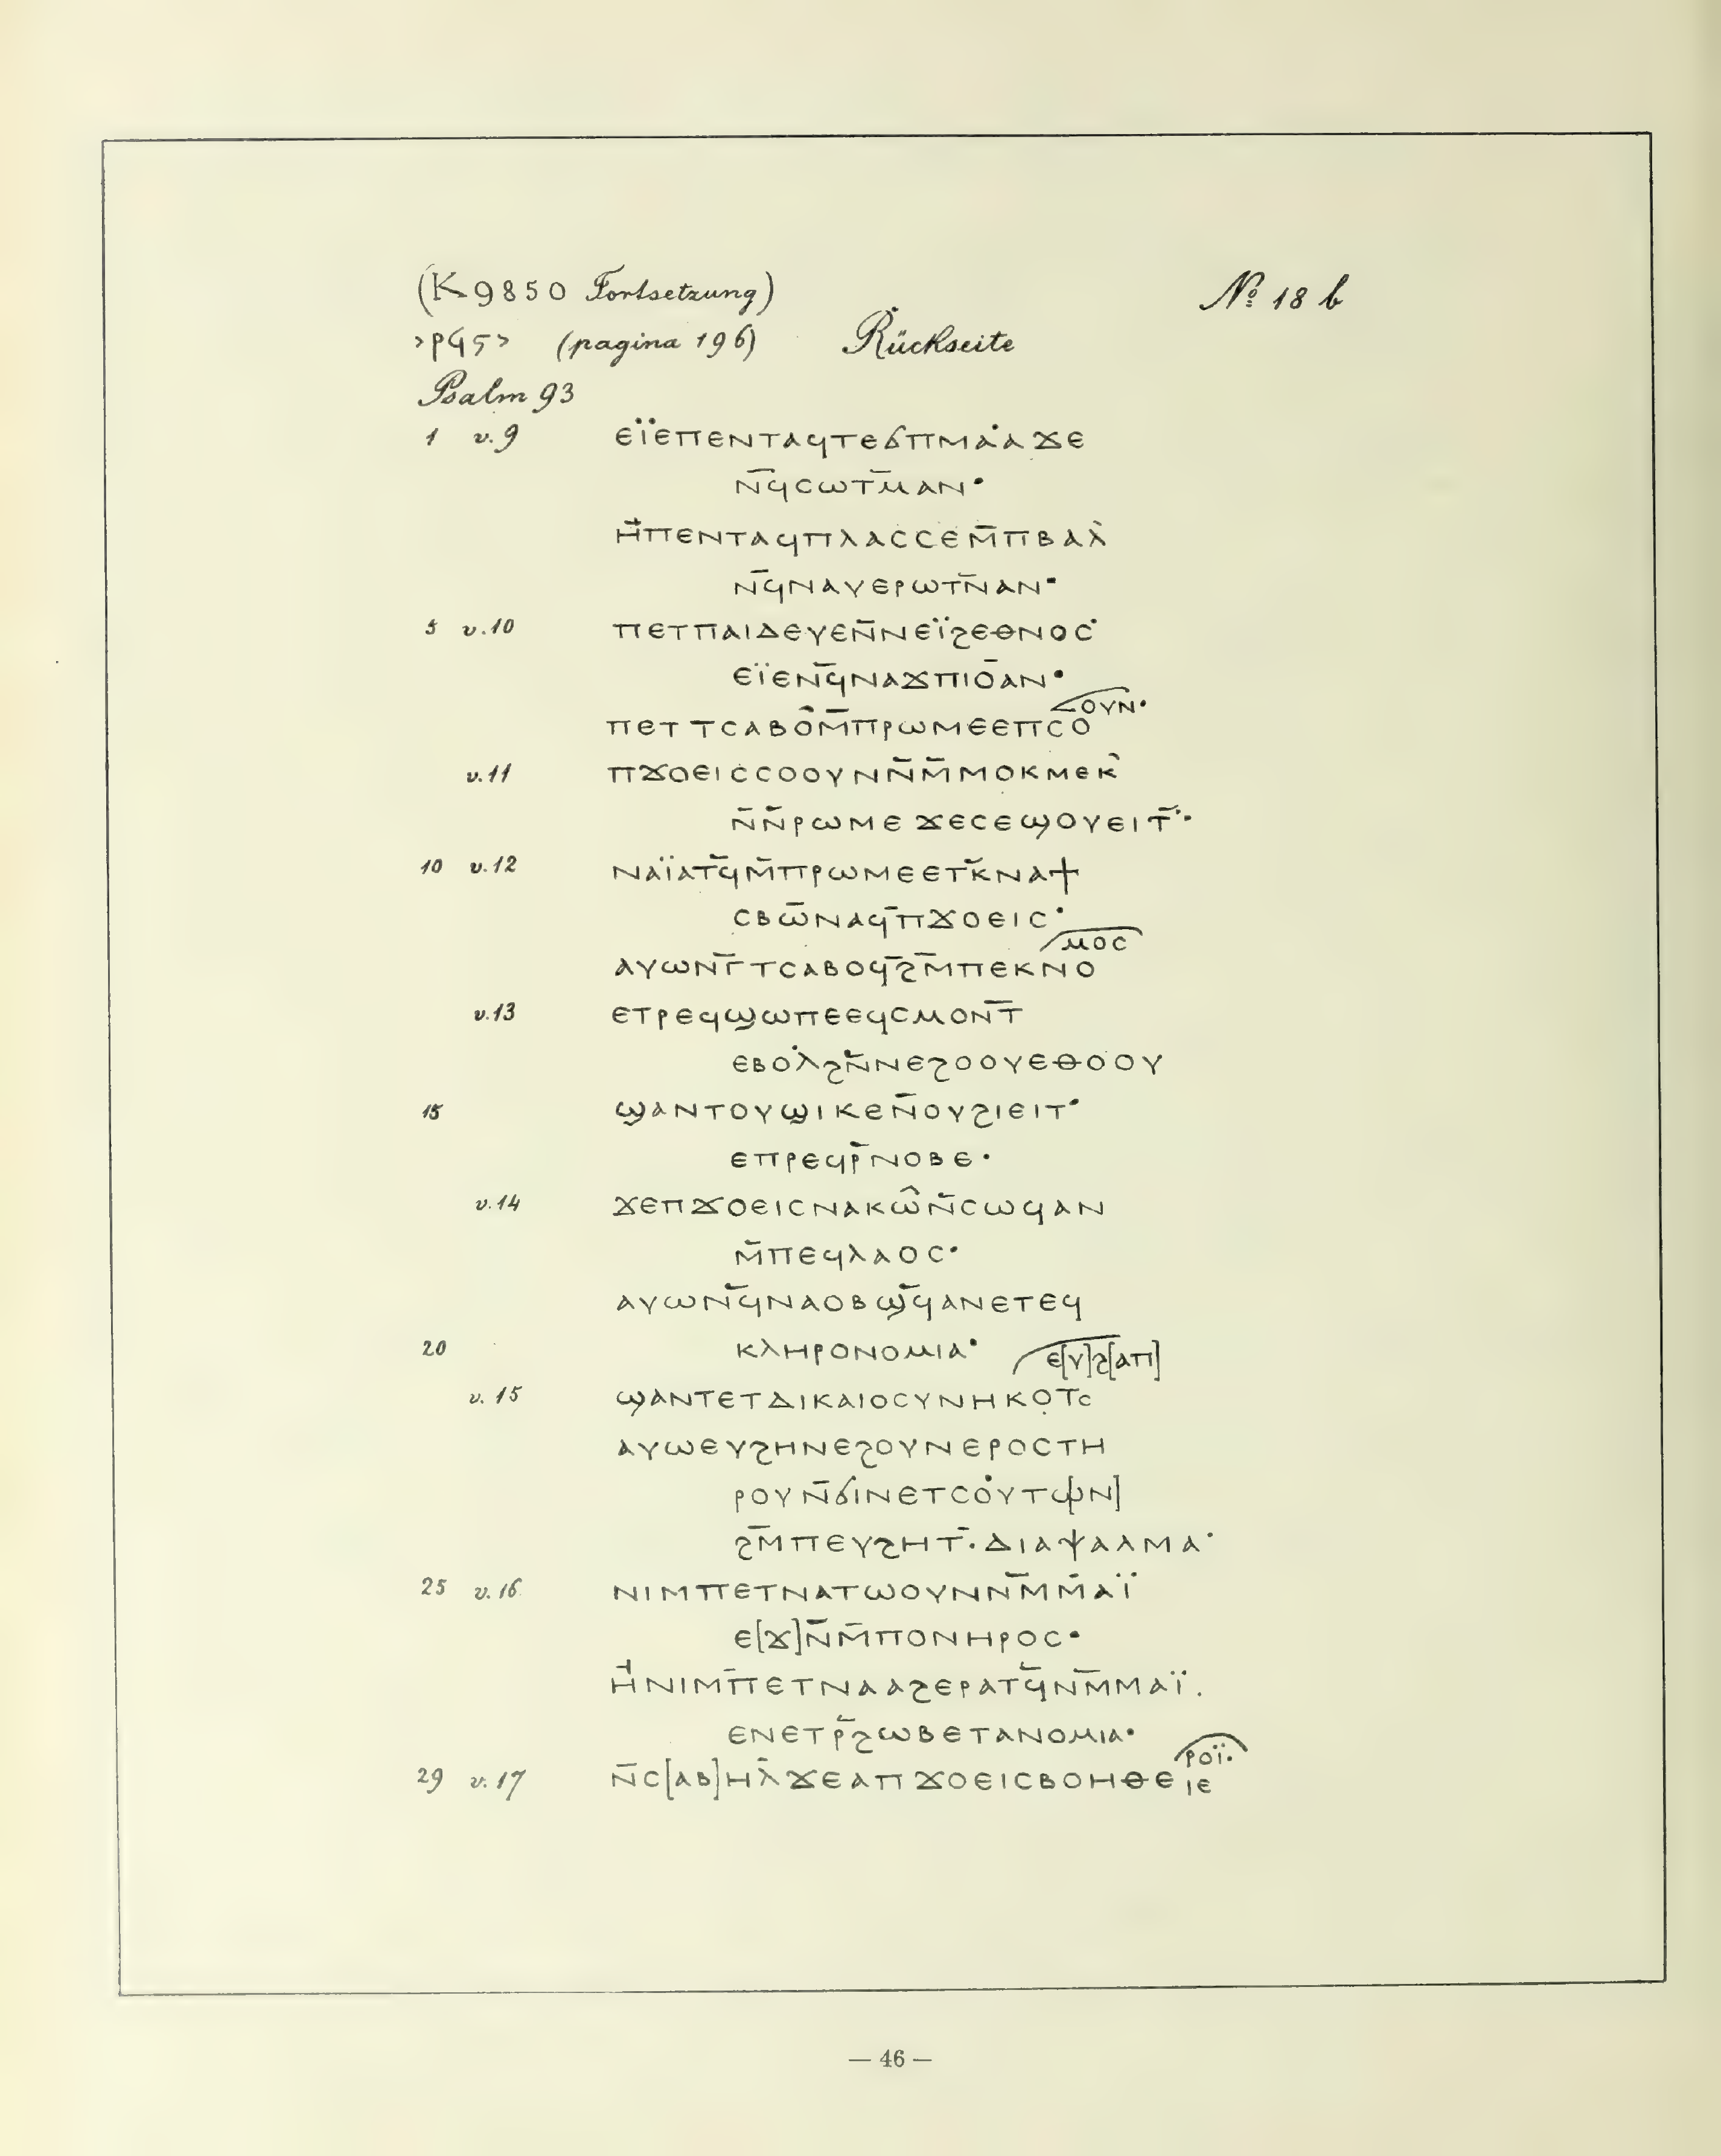 (K 9850 Fortsetzung) № 18 b
>ⲣϥ5> (pagina 196) Rückseite
Psalm 93
1 v. 9 ⲉⲓ̈ⲉⲡⲉⲛⲧⲁϥⲧⲉϭⲡⲙⲁ̇ⲁϫⲉ
ⲛ̅ϥⲥⲱⲧⲙ̅ⲁⲛ·
ⲏ̇ⲡⲉⲛⲧⲁϥⲡⲗⲁⲥⲥⲉⲙ̅ⲡⲃⲁⲗ̀
ⲛ̅ϥⲛⲁⲩⲉⲣⲱⲧⲛ̅ⲁⲛ·
5 v. 10 ⲡⲉⲧⲡⲁⲓⲇⲉⲩⲉⲛ̅ⲛⲉⲓ̈ϩⲉⲑⲛⲟⲥ·
ⲉⲓ̈ⲉⲛϥ̅ⲛⲁϫⲡⲓⲟ̅ⲁⲛ·
ⲟⲩⲛ·
ⲡⲉⲧⲧⲥⲁⲃⲟ̂ⲙ̅ⲡⲣⲱⲙⲉⲉⲡⲥⲟ
v. 11 ⲡϫⲟⲉⲓⲥⲥⲟⲟⲩⲛⲛ̅ⲙ̅ⲙⲟⲕⲙⲉⲕ̀
ⲛ̅ⲛ̅ⲣⲱⲙⲉϫⲉⲥⲉϣⲟⲩⲉⲓⲧ̅·
10 v. 12 ⲛⲁⲓ̈ⲁⲧϥ̅ⲙ̅ⲡⲣⲱⲙⲉⲉⲧⲕ̅ⲛⲁϯ
ⲥⲃⲱ̅ⲛⲁϥ̅ⲡϫⲟⲉⲓⲥ·
ⲙⲟⲥ
ⲁⲩⲱⲛⲅ̅ⲧⲥⲁⲃⲟϥ̅ϩⲙ̅ⲡⲉⲕⲛⲟ
v. 13 ⲉⲧⲣⲉϥϣⲱⲡⲉⲉϥⲥⲙⲟⲛⲧ̅
ⲉⲃⲟⲗ̇ϩⲛ̅ⲛⲉϩⲟⲟⲩⲉⲑⲟⲟⲩ
15 ϣⲁⲛⲧⲟⲩϣⲓⲕⲉⲛ̅ⲟⲩϩⲓⲉⲓⲧ·
ⲉⲡⲣⲉϥⲣ̅ⲛⲟⲃⲉ·
v. 14 ϫⲉⲡϫⲟⲉⲓⲥⲛⲁⲕⲱ̂ⲛ̅ⲥⲱϥⲁⲛ
ⲙ̅ⲡⲉϥⲗⲁⲟⲥ·
ⲁⲩⲱⲛϥ̅ⲛⲁⲟⲃϣϥ̅ⲁⲛⲉⲧⲉϥ
20 ⲕⲗⲏⲣⲟⲛⲟⲙⲓⲁ· ⲉ[ⲩ]ϩ[ⲁⲡ]
v. 15 ϣⲁⲛⲧⲉⲧⲇⲓⲕⲁⲓⲟⲥⲩⲛⲏⲕⲟ̣ⲧⲥ
ⲁⲩⲱⲉⲩϩⲏⲛⲉϩⲟⲩⲛⲉⲣⲟⲥⲧⲏ
ⲣⲟⲩⲛ̅ϭⲓⲛⲉⲧⲥⲟ̇ⲩⲧⲱ[ⲛ]
ϩⲙ̅ⲡⲉⲩϩⲏⲧ̅·ⲇⲓⲁⲯⲁⲗⲙⲁ·
25 v. 16 ⲛⲓⲙⲡⲉⲧⲛⲁⲧⲱⲟⲩⲛⲛⲙ̅ⲙ̅ⲁⲓ̈
ⲉ[ϫ]ⲛ̅ⲙ̅ⲡⲟⲛⲏⲣⲟⲥ·
ⲏ̇ⲛⲓⲙⲡ̅ⲉⲧⲛⲁⲁϩⲉⲣⲁⲧϥ̅ⲛⲙ̅ⲙⲁⲓ̈.
ⲉⲛⲉⲧⲣ̅ϩⲱⲃⲉⲧⲁⲛⲟⲙⲓⲁ·
ⲣⲟⲓ̈·
29 v. 17 ⲛ̅ⲥ[ⲁⲃ]ⲏⲗ̀ϫⲉⲁⲡϫⲟⲉⲓⲥⲃⲟⲏⲑⲉⲓⲉ
— 46 —